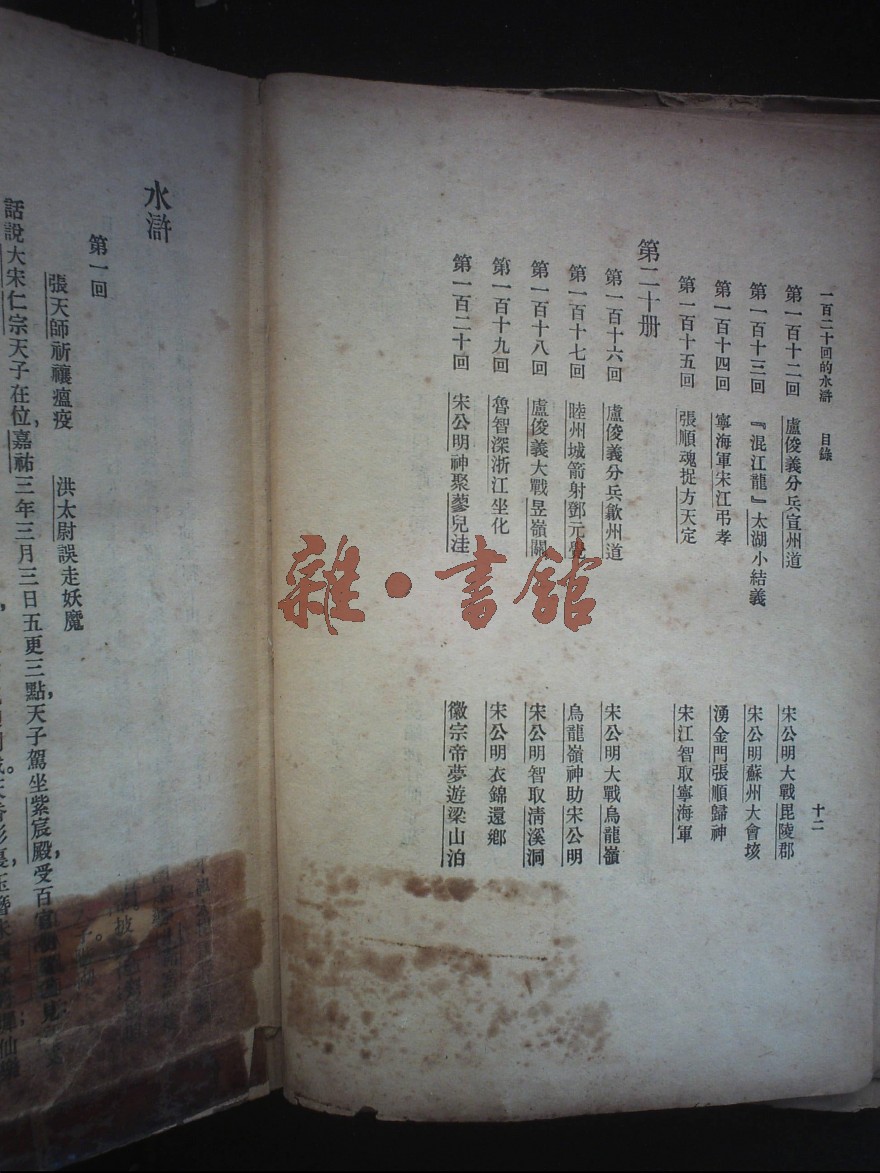 一百二十回的水滸　目錄　十二
第一百十二回　盧俊義分兵宣州道　宋公明大戰毘陵郡
第一百十三回　『混江龍』太湖小結義　宋公明蘇州大會垓
第一百十四回　寧海軍宋江弔孝　湧金門張順歸神
第一百十五回　張順魂捉方天定　宋江智取寧海軍
第二十册
第一百十六回　盧俊義分兵歙州道　宋公明大戰烏龍嶺
第一百十七回　睦州城箭射鄧元覺　烏龍嶺神助宋公明
第一百十八回　盧俊義大戰昱嶺關　宋公明智取清溪洞
第一百十九回　魯智深浙江坐化　宋公明衣錦還鄉
第一百二十回　宋公明神聚蓼兒洼　徽宗帝夢遊梁山泊
水滸
第一回
張天師祈禳瘟疫　洪太尉誤走妖魔
話說大宋仁宗天子在位，嘉祐三年三月三日五更三點，天子駕坐紫宸殿，受百官
雜·書館